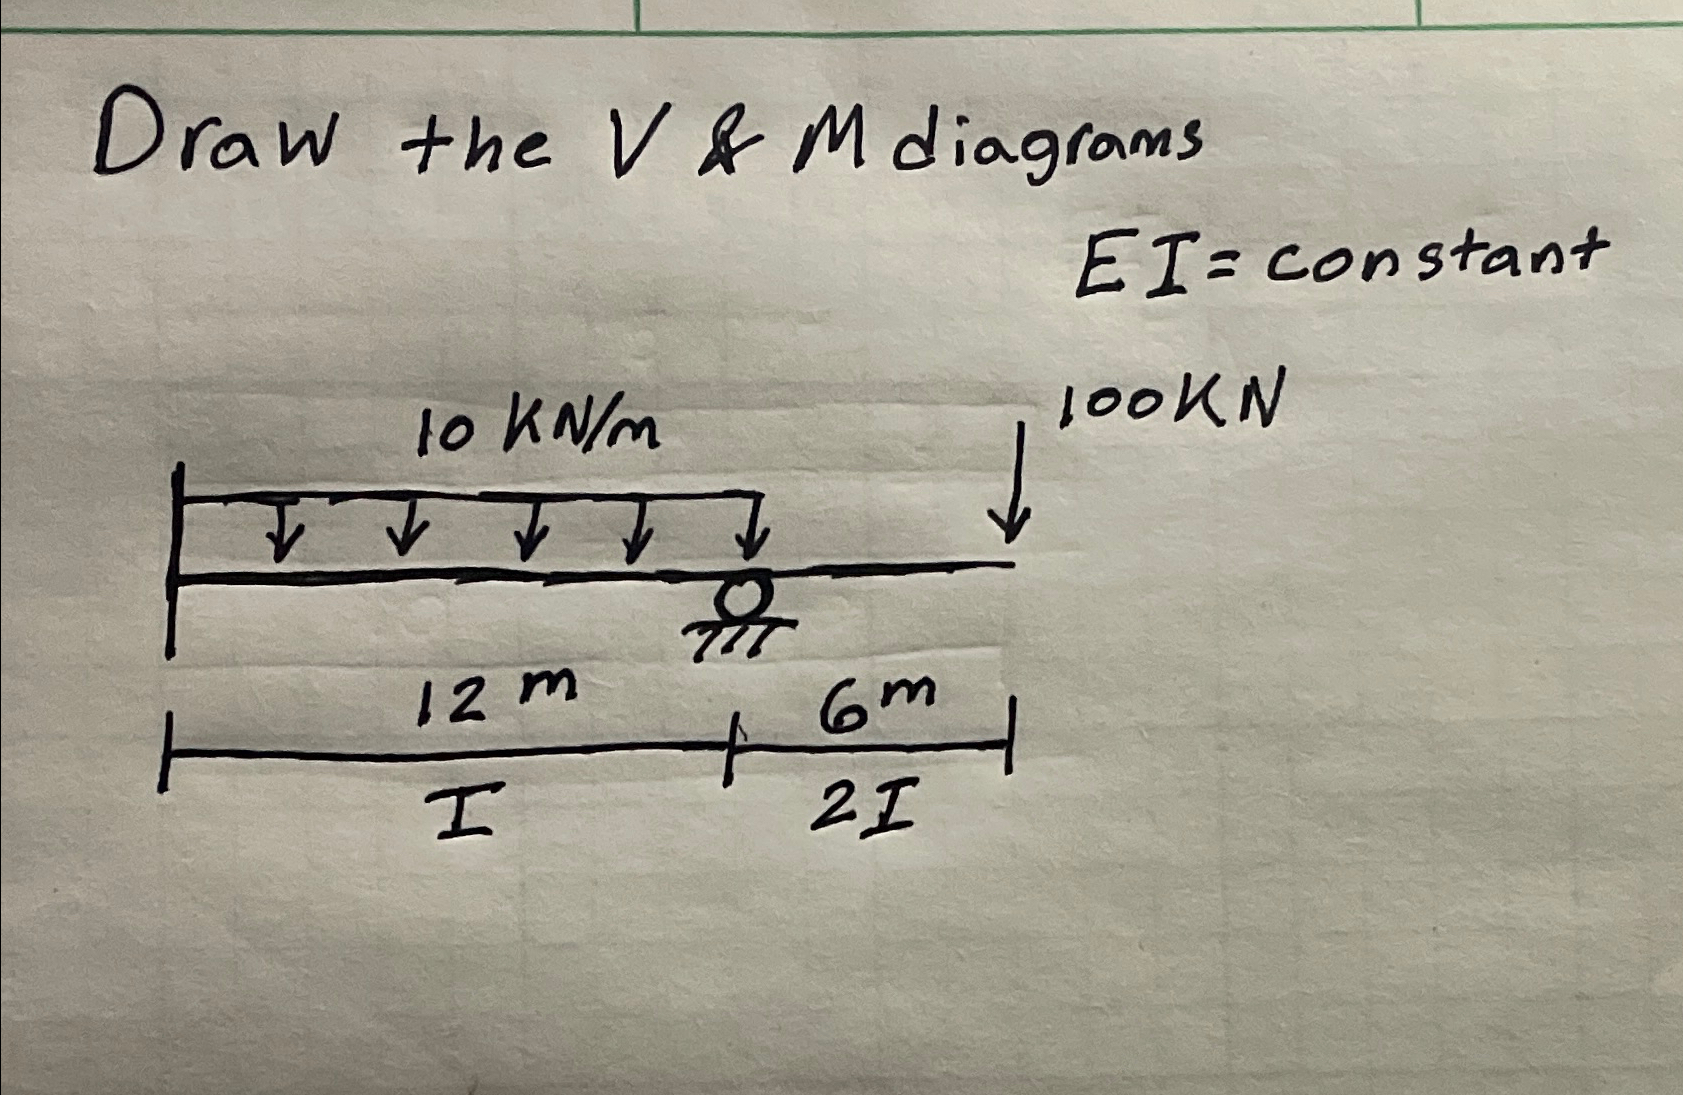 Draw the V & M diagrams
EI = constant
10 KN/m
100KN
12 m
6 m
I
2I